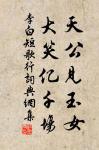 天公見玉女
大笑億千場
李白短歌行詞典網集